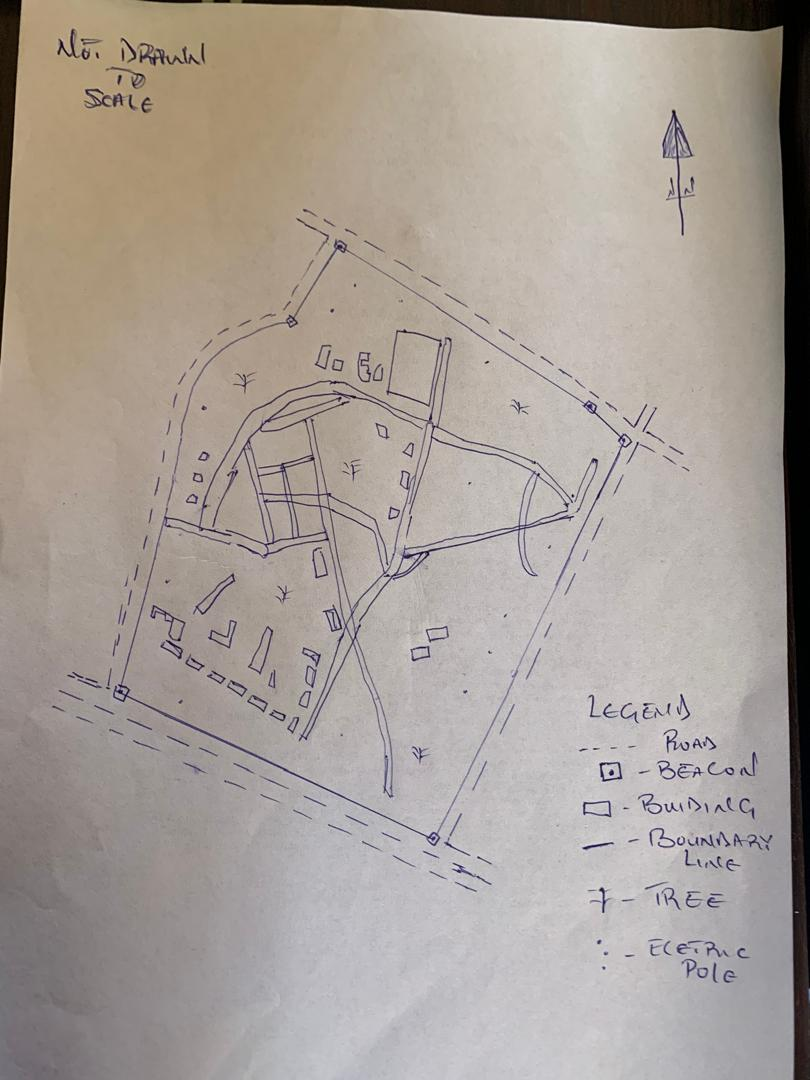 NOT DRAWN
TO
SCALE
N
LEGEND
ROAD
- BEACON
- BUIDING
- BOUNDARY
LINE
- TREE
- ECETRIC
POLE